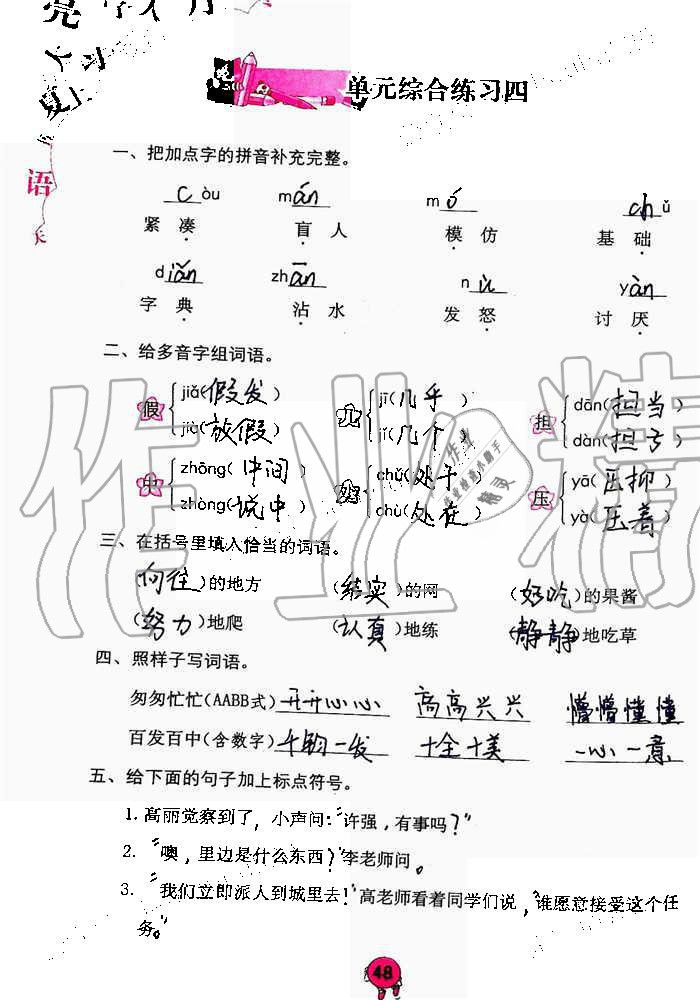 单元综合练习四
语
一、把加点字的拼音补充完整。
c òu mán mó chǔ
紧凑 盲人 模仿 基础
diǎn zhān nù yàn
字典 沾水 发怒 讨厌
二、给多音字组词语。
假 jiǎ(假发) 几 jī(几乎) 担 dān(担当)
jià(放假) jǐ(几个) dàn(担亏)
中 zhōng(中间) 处 chǔ(处于) 压 yā(压抑)
zhòng(说中) chù(处在) yà(压着)
三、在括号里填入恰当的词语。
(向往)的地方 (结实)的网 (好吃)的果酱
(努力)地爬 (认真)地练 (静静)地吃草
四、照样子写词语。
匆匆忙忙(AABB式) 开开心心 高高兴兴 懵懵懂懂
百发百中(含数字) 千钧一发 十全十美 一心一意
五、给下面的句子加上标点符号。
1. 高丽觉察到了,小声问:“许强,有事吗?”
2. “噢,里边是什么东西?”李老师问。
3. “我们立即派人到城里去!”高老师看着同学们说,“谁愿意接受这个任
务。”
48
作业精灵